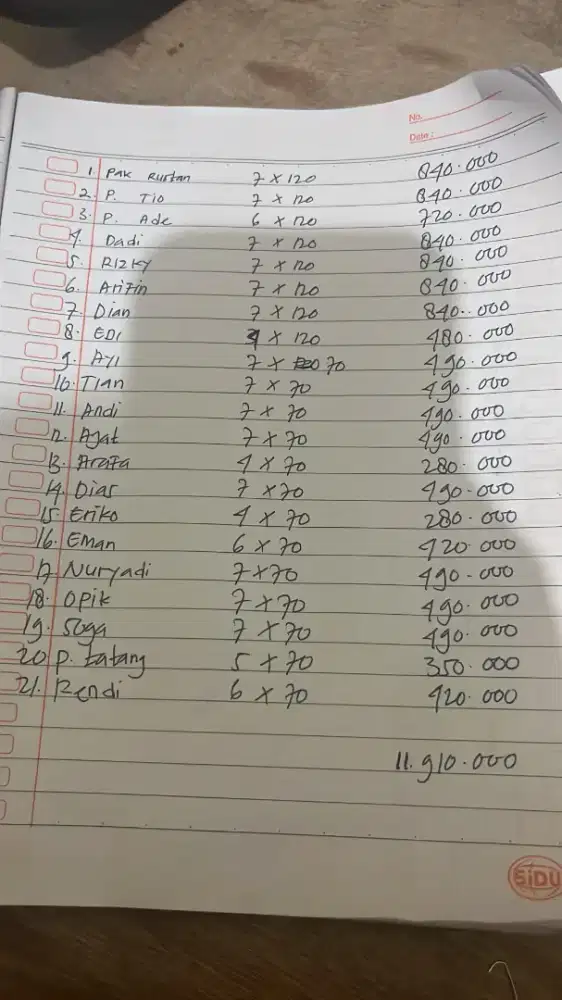 No.
Date :
1. Pak Rustan 7 x 120 840.000
2. P. Tio 7 x 120 840.000
3. P. Ade 6 x 120 720.000
4. Dadi 7 x 120 840.000
5. Rizky 7 x 120 840.000
6. Arifin 7 x 120 840.000
7. Dian 7 x 120 840.000
8. EDI 4 x 120 480.000
9. AYI 7 x 70 490.000
10. Tian 7 x 70 490.000
11. Andi 7 x 70 490.000
12. Ajat 7 x 70 490.000
13. Arafa 4 x 70 280.000
14. Dias 7 x 70 490.000
15. Eriko 4 x 70 280.000
16. Eman 6 x 70 420.000
17. Nuryadi 7 x 70 490.000
18. Opik 7 x 70 490.000
19. Soga 7 x 70 490.000
20. P. tatang 5 x 70 350.000
21. Rendi 6 x 70 420.000
11.910.000
SiDU